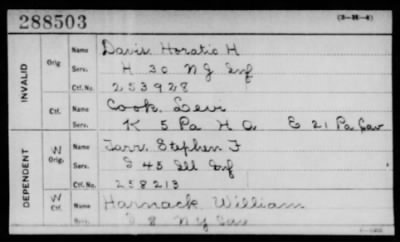 288503 (3-26-4)
INVALID Orig Name Davis Horatio H
Serv. H 30 N J Inf
Ctf. No. 253928
Ctf. Name Cook Levi
Serv. K 5 Pa H A E 21 Pa Cav
DEPENDENT W Orig. Name Tarr Stephen F
Serv. I 45 Ill Inf
Ctf. No. 258213
W Ctf. Name Harnack William
Serv. 8 N Y Cav